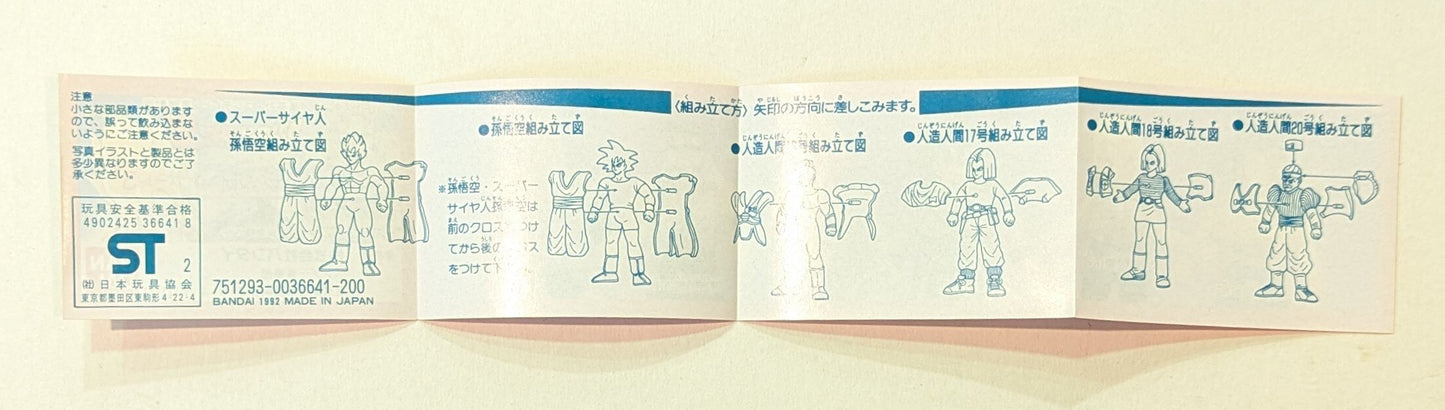 注意
小さな部品類があります
ので、誤って飲み込まな
いようにご注意ください。
写真イラストと製品とは
多少異なりますのでご了
承ください。
玩具安全基準合格
4902425 36641 8
ST 2
㈳日本玩具協会
東京都墨田区東駒形4-22-4
●スーパーサイヤ人
孫悟空組み立て図
751293-0036641-200
BANDAI 1992 MADE IN JAPAN
●孫悟空組み立て図
※孫悟空・スーパー
サイヤ人孫悟空は
前のクロスをつけ
てから後の
をつけて下
〈組み立て方〉矢印の方向に差しこみます。
●人造人間 号組み立て図
●人造人間17号組み立て図
●人造人間18号組み立て図
●人造人間20号組み立て図